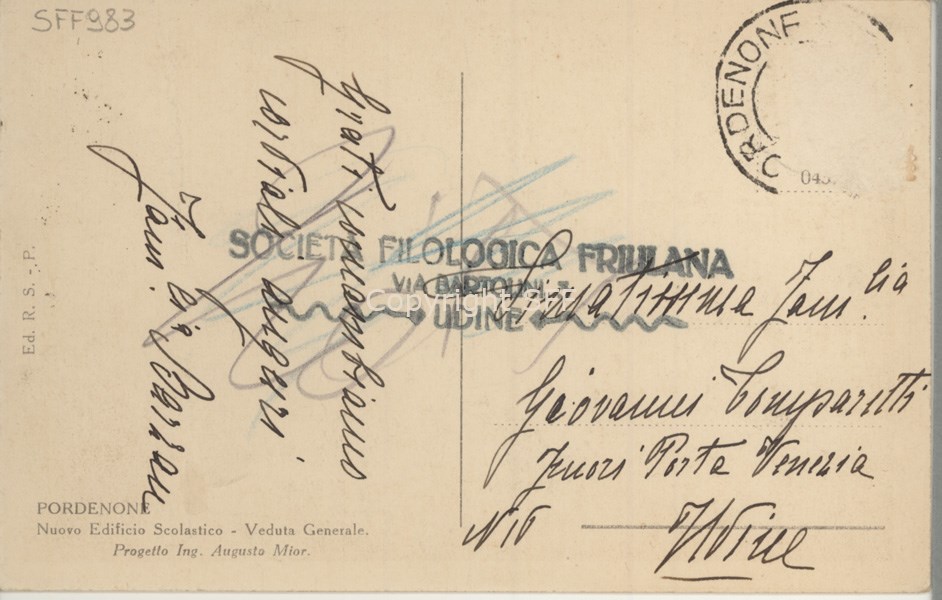 SFF983
PORDENONE
043
Grati contraccambiamo
cordiali auguri
Fam.
SOCIETÀ FILOLOGICA FRIULANA
VIA BARTOLINI 3
UDINE
Copyright SFF
Stimatissima Fam.lia
Giovanni Comparetti
Fuori Porta Venezia
N 10
Udine
Ed. R. S. - P.
PORDENONE
Nuovo Edificio Scolastico - Veduta Generale.
Progetto Ing. Augusto Mior.